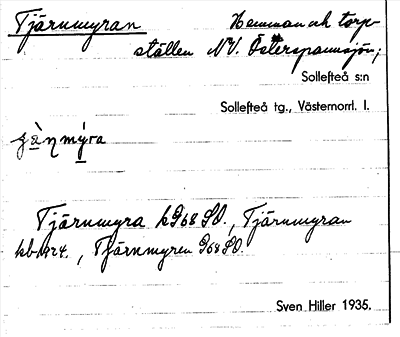 Tjärnmyran Hemman och torp-
ställen NV. Österspannsjön;
Sollefteå s:n
Sollefteå tg., Västernorrl. l.
Tjärnmyra k G68 SO., Tjärnmyran
kb 1824., Tjärnmyren G68 SO.
Sven Hiller 1935.